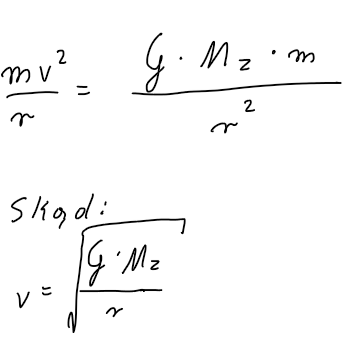 mv²/r = G · M_z · m / r²
Skąd:
v = √(G · M_z / r)